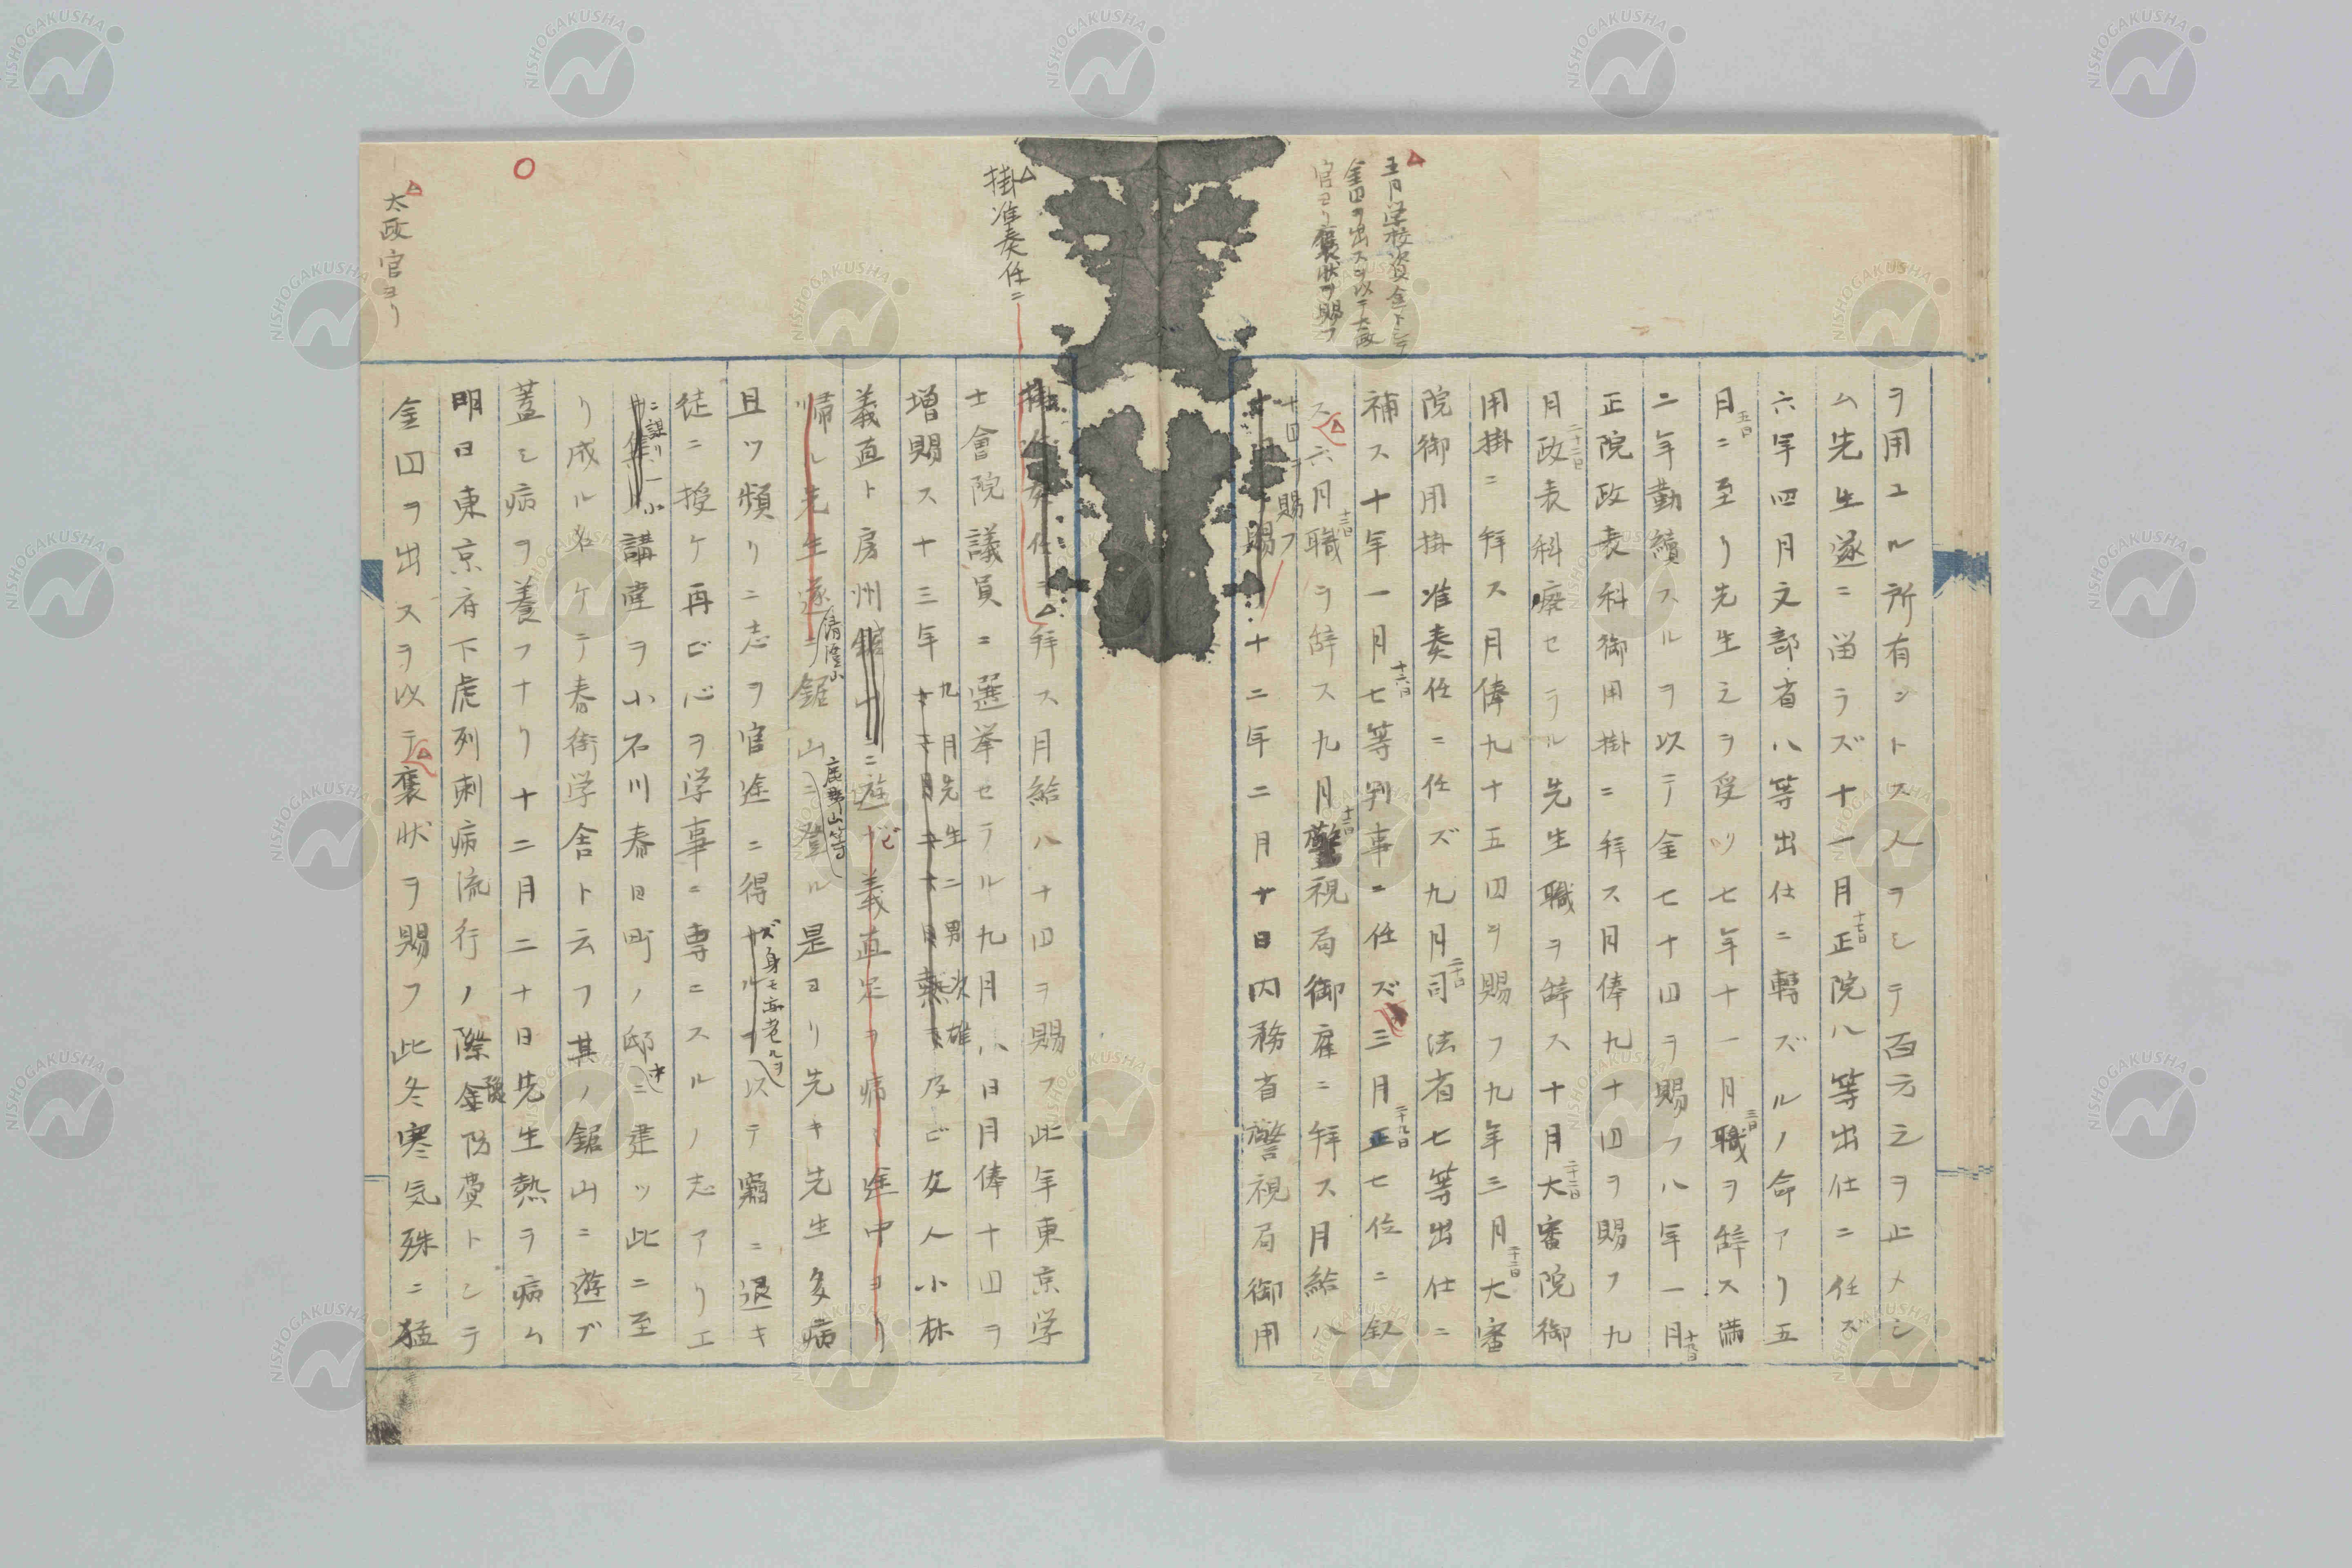 五月学校資金トシテ
金円ヲ出スヲ以テ太政
官ヨリ褒状ヲ賜フ
ヲ用ユル所有ントス人ヲシテ百方之ヲ止メシ
ム先生遂ニ留ラズ十一月十七日正院八等出仕ニ任ズ
六年四月文部省八等出仕ニ轉ズルノ命アリ五
月五日ニ至リ先生之ヲ受ツ七年十一月三日職ヲ辞ス満
二年勤續スルヲ以テ金七十円ヲ賜フ八年一月十九日
正院政表科御用掛ニ拜ス月俸九十円ヲ賜フ九
月二十二日政表科廃セラル先生職ヲ辞ス十月二十二日大審院御
用掛ニ拜ス月俸九十五円ヲ賜フ九年三月二十三日大審
院御用掛准奏任ニ任ズ九月二十日司法省七等出仕ニ
補ス十年一月十六日七等判事ニ任ズ三月二十九日正七位ニ叙
ス六月十三日職ヲ辞ス九月十三日警視局御雇ニ拜ス月給八
十円ヲ賜フ
十二年二月十日内務省警視局御用
掛准奏任ニ
拜ス月給八十円ヲ賜フ此年東京学
士會院議員ニ選挙セラル九月八日月俸十円ヲ
増賜ス十三年九月先生二男次雄及ビ友人小林
義直ト房州ニ遊ビ義直足ヲ病ミ途中ヨリ
帰ル先生遂ニ鋸山清澄山鹿野山等ニ登ル是ヨリ先キ先生多病
且ツ頻リニ志ヲ官途ニ得ズ身モ亦老ルヲ以テ竊ニ退キ
徒ニ授ケ再ビ心ヲ学事ニ専ニスルノ志アリエ
ニ謀リ一小講堂ヲ小石川春日町ノ邸中ニ建ツ此ニ至
リ成ル名ケテ春街学舎ト云フ其ノ鋸山ニ遊ブ
蓋シ病ヲ養フナリ十二月二十日先生熱ヲ病ム
明日東京府下虎列剌病流行ノ際豫防費トシテ
金円ヲ出スヲ以テ褒状ヲ賜フ此冬寒気殊ニ猛
太政官ヨリ